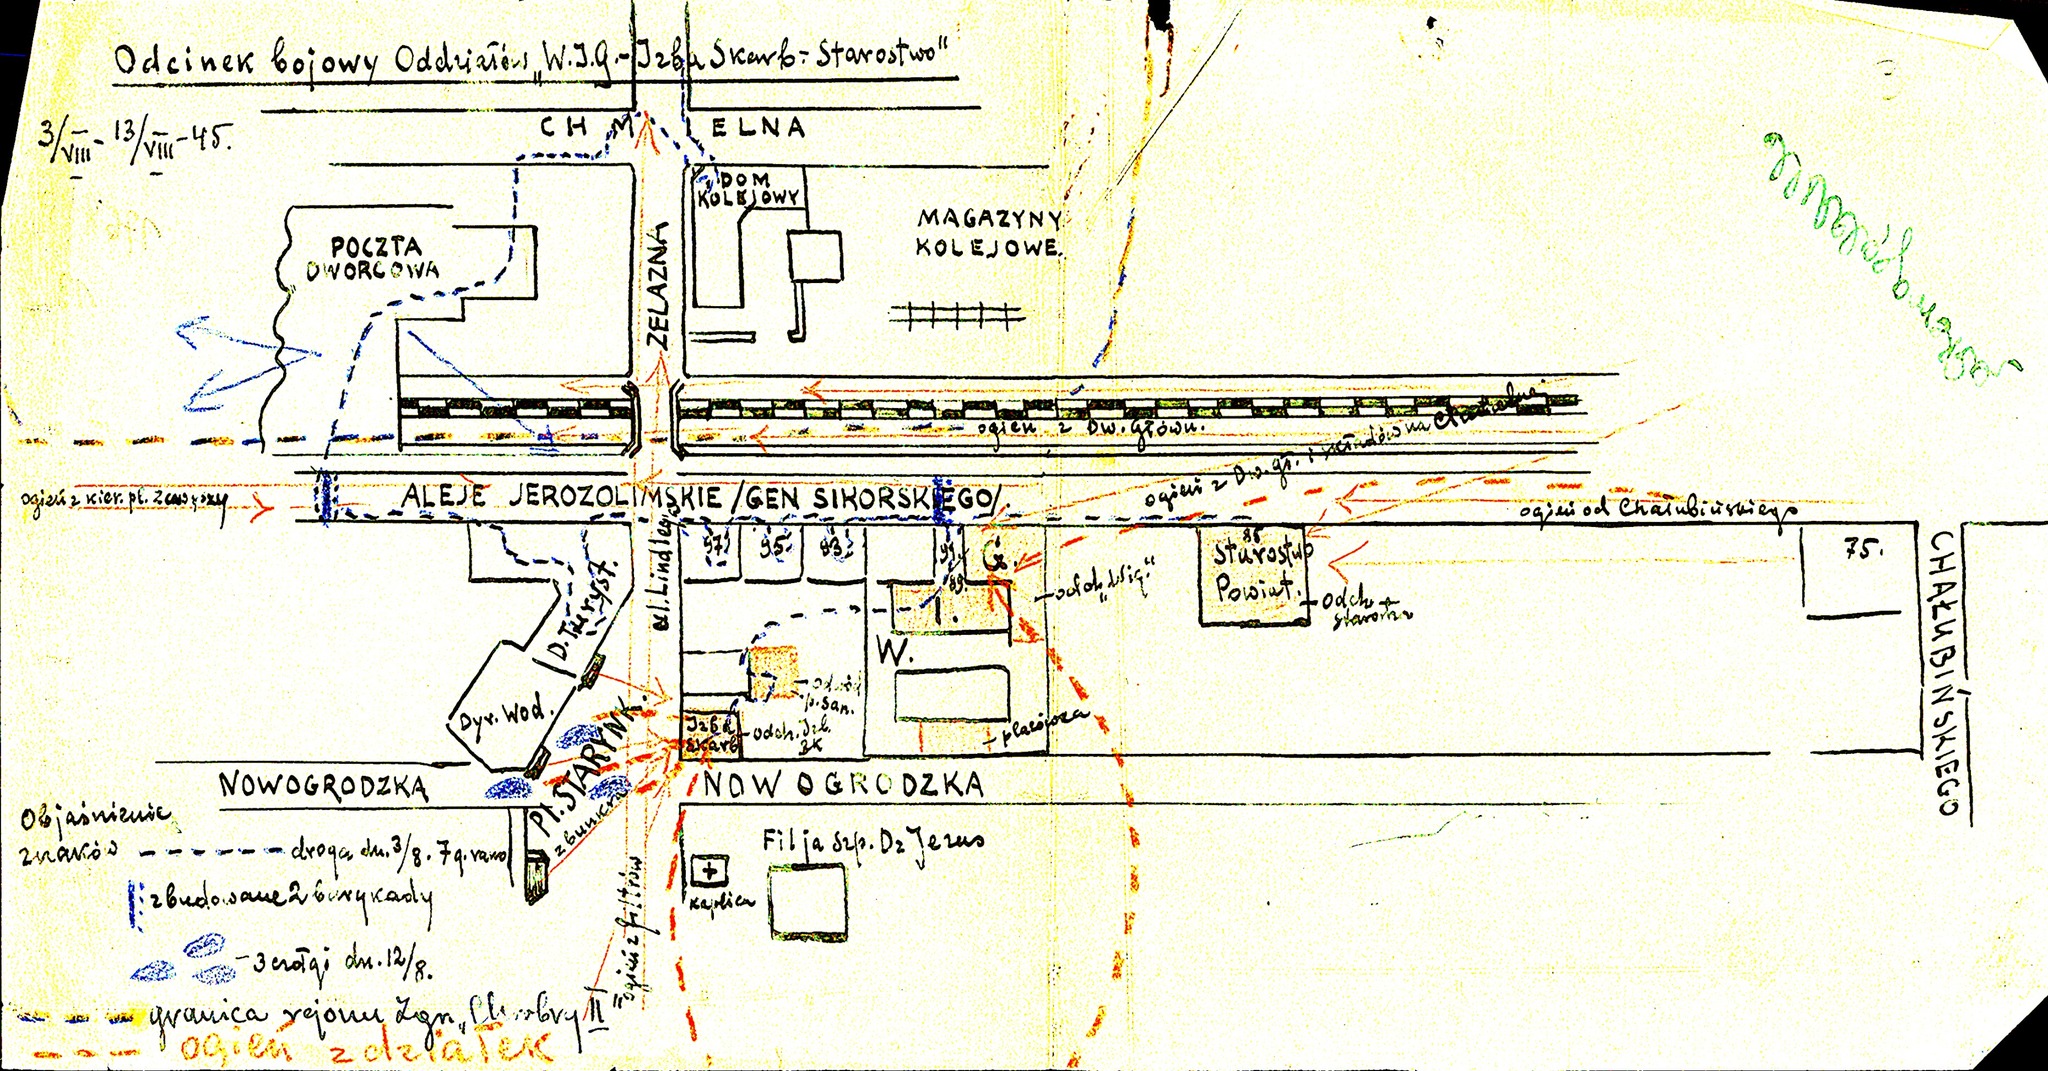 Odcinek bojowy Oddziałów „W.I.G.-Izba Skarb:- Starostwo"
3/VIII - 13/VIII - 45.
CHMIELNA
DOM
KOLEJOWY
MAGAZYNY
KOLEJOWE.
POCZTA
DWORCOWA
ZELAZNA
ogień z Dw. Główn.
ogień z Dw. gł. i składów na Chmielnej
ogień z kier. pl. Zawiszy
ALEJE JEROZOLIMSKIE /GEN SIKORSKIEGO/.
ogień od Chałubińskiego
97.
95.
93.
91.
89.
G.
I.
W.
85
Starostwo
Powiat.
75.
CHAŁUBIŃSKIEGO
odch. „Wig."
odch.
Starostwa
ul. Lindleya
D. Turyst.
Dyr. Wod.
Pl. STARYNK.
Izba
Skarb
odwód
p. San.
odch. Izb.
Sk
placówka
NOWOGRODZKA
NOWOGRODZKA
zbunkra
ogień z filtrów
Filja Szp. Dz Jezus
kaplica
Objaśnienie
znaków
droga dn. 3/8. 7 g. rano
zbudowane 2 barykady
3 czołgi dn. 12/8.
granica rejonu Zgr. „Chrobry II"
ogień z działek